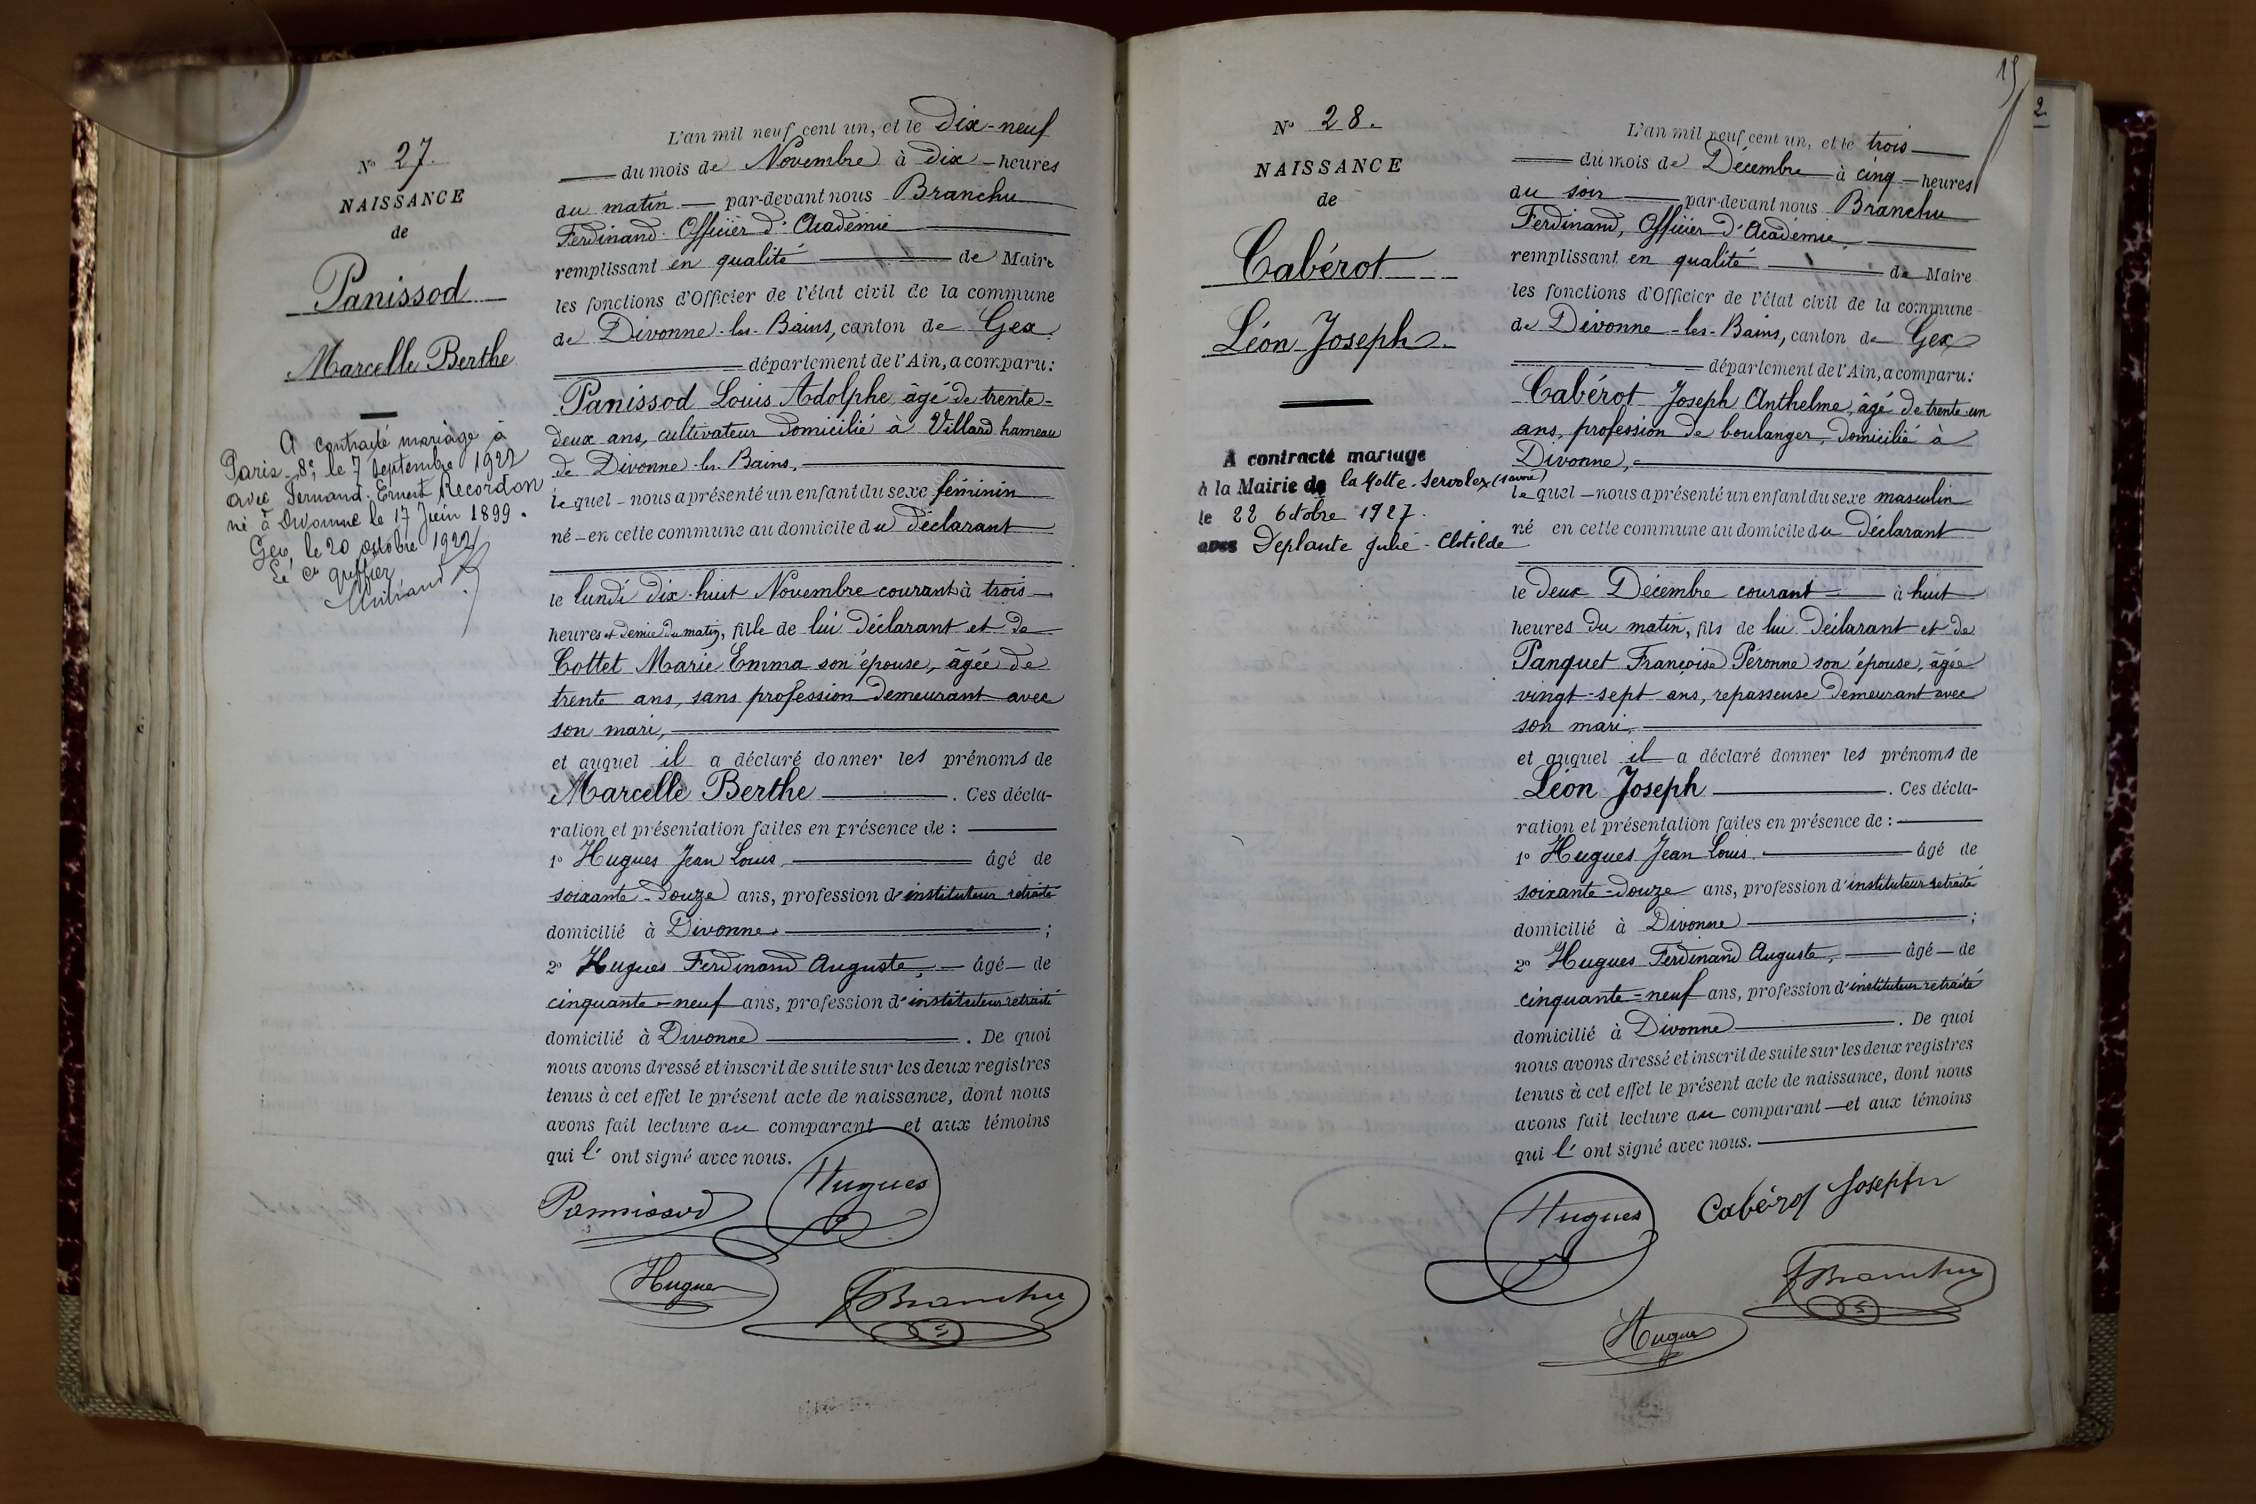 N° 27.
NAISSANCE
de
Panissod
Marcelle Berthe
A contracté mariage à
Paris 8e, le 7 Septembre 1922
avec Fernand Ernest Recordon
né à Divonne le 17 Juin 1899.
Gex, le 20 octobre 1922
Le Cis greffier
L'an mil neuf cent un, et le Dix-neuf
du mois de Novembre à Dix heures
du matin par-devant nous Branchu
Ferdinand Officier d'Académie
remplissant en qualité de Maire
les fonctions d'Officier de l'état civil de la commune
de Divonne-les-Bains, canton de Gex
département de l'Ain, a comparu:
Panissod Louis Adolphe, âgé de trente-
deux ans, cultivateur domicilié à Villard hameau
de Divonne-les-Bains,
lequel nous a présenté un enfant du sexe féminin
né en cette commune au domicile du déclarant
le lundi dix-huit Novembre courant à trois
heures et demie du matin, fille de lui déclarant et de
Cottet Marie Emma son épouse, âgée de
trente ans, sans profession demeurant avec
son mari,
et auquel il a déclaré donner les prénoms de
Marcelle Berthe . Ces décla-
ration et présentation faites en présence de :
1° Hugues Jean Louis âgé de
soixante-douze ans, profession d'instituteur retraité
domicilié à Divonne ;
2° Hugues Ferdinand Auguste, âgé de
cinquante-neuf ans, profession d'instituteur retraité
domicilié à Divonne . De quoi
nous avons dressé et inscrit de suite sur les deux registres
tenus à cet effet le présent acte de naissance, dont nous
avons fait lecture au comparant et aux témoins
qui l' ont signé avec nous.
Pannissod Hugues
Hugues FBranchu
15
2
N° 28.
NAISSANCE
de
Cabérot
Léon Joseph
A contracté mariage
à la Mairie de la Motte-Servolex (Savoie)
le 22 Octobre 1927.
avec Deplante Julie-Clotilde
L'an mil neuf cent un, et le trois
du mois de Décembre à cinq heures
du soir par-devant nous Branchu
Ferdinand, Officier d'Académie,
remplissant en qualité de Maire
les fonctions d'Officier de l'état civil de la commune
de Divonne-les-Bains, canton de Gex
département de l'Ain, a comparu:
Cabérot Joseph Anthelme, âgé de trente-un
ans, profession de boulanger, domicilié à
Divonne,
lequel nous a présenté un enfant du sexe masculin
né en cette commune au domicile du déclarant
le deux Décembre courant à huit
heures du matin, fils de lui déclarant et de
Panquet Françoise Péronne son épouse, âgée
vingt-sept ans, repasseuse demeurant avec
son mari,
et auquel il a déclaré donner les prénoms de
Léon Joseph . Ces décla-
ration et présentation faites en présence de :
1° Hugues Jean Louis âgé de
soixante-douze ans, profession d'instituteur retraité
domicilié à Divonne ;
2° Hugues Ferdinand Auguste, âgé de
cinquante-neuf ans, profession d'instituteur retraité
domicilié à Divonne . De quoi
nous avons dressé et inscrit de suite sur les deux registres
tenus à cet effet le présent acte de naissance, dont nous
avons fait lecture au comparant et aux témoins
qui l' ont signé avec nous.
Hugues Cabérot Joseph
FBranchu
Hugues